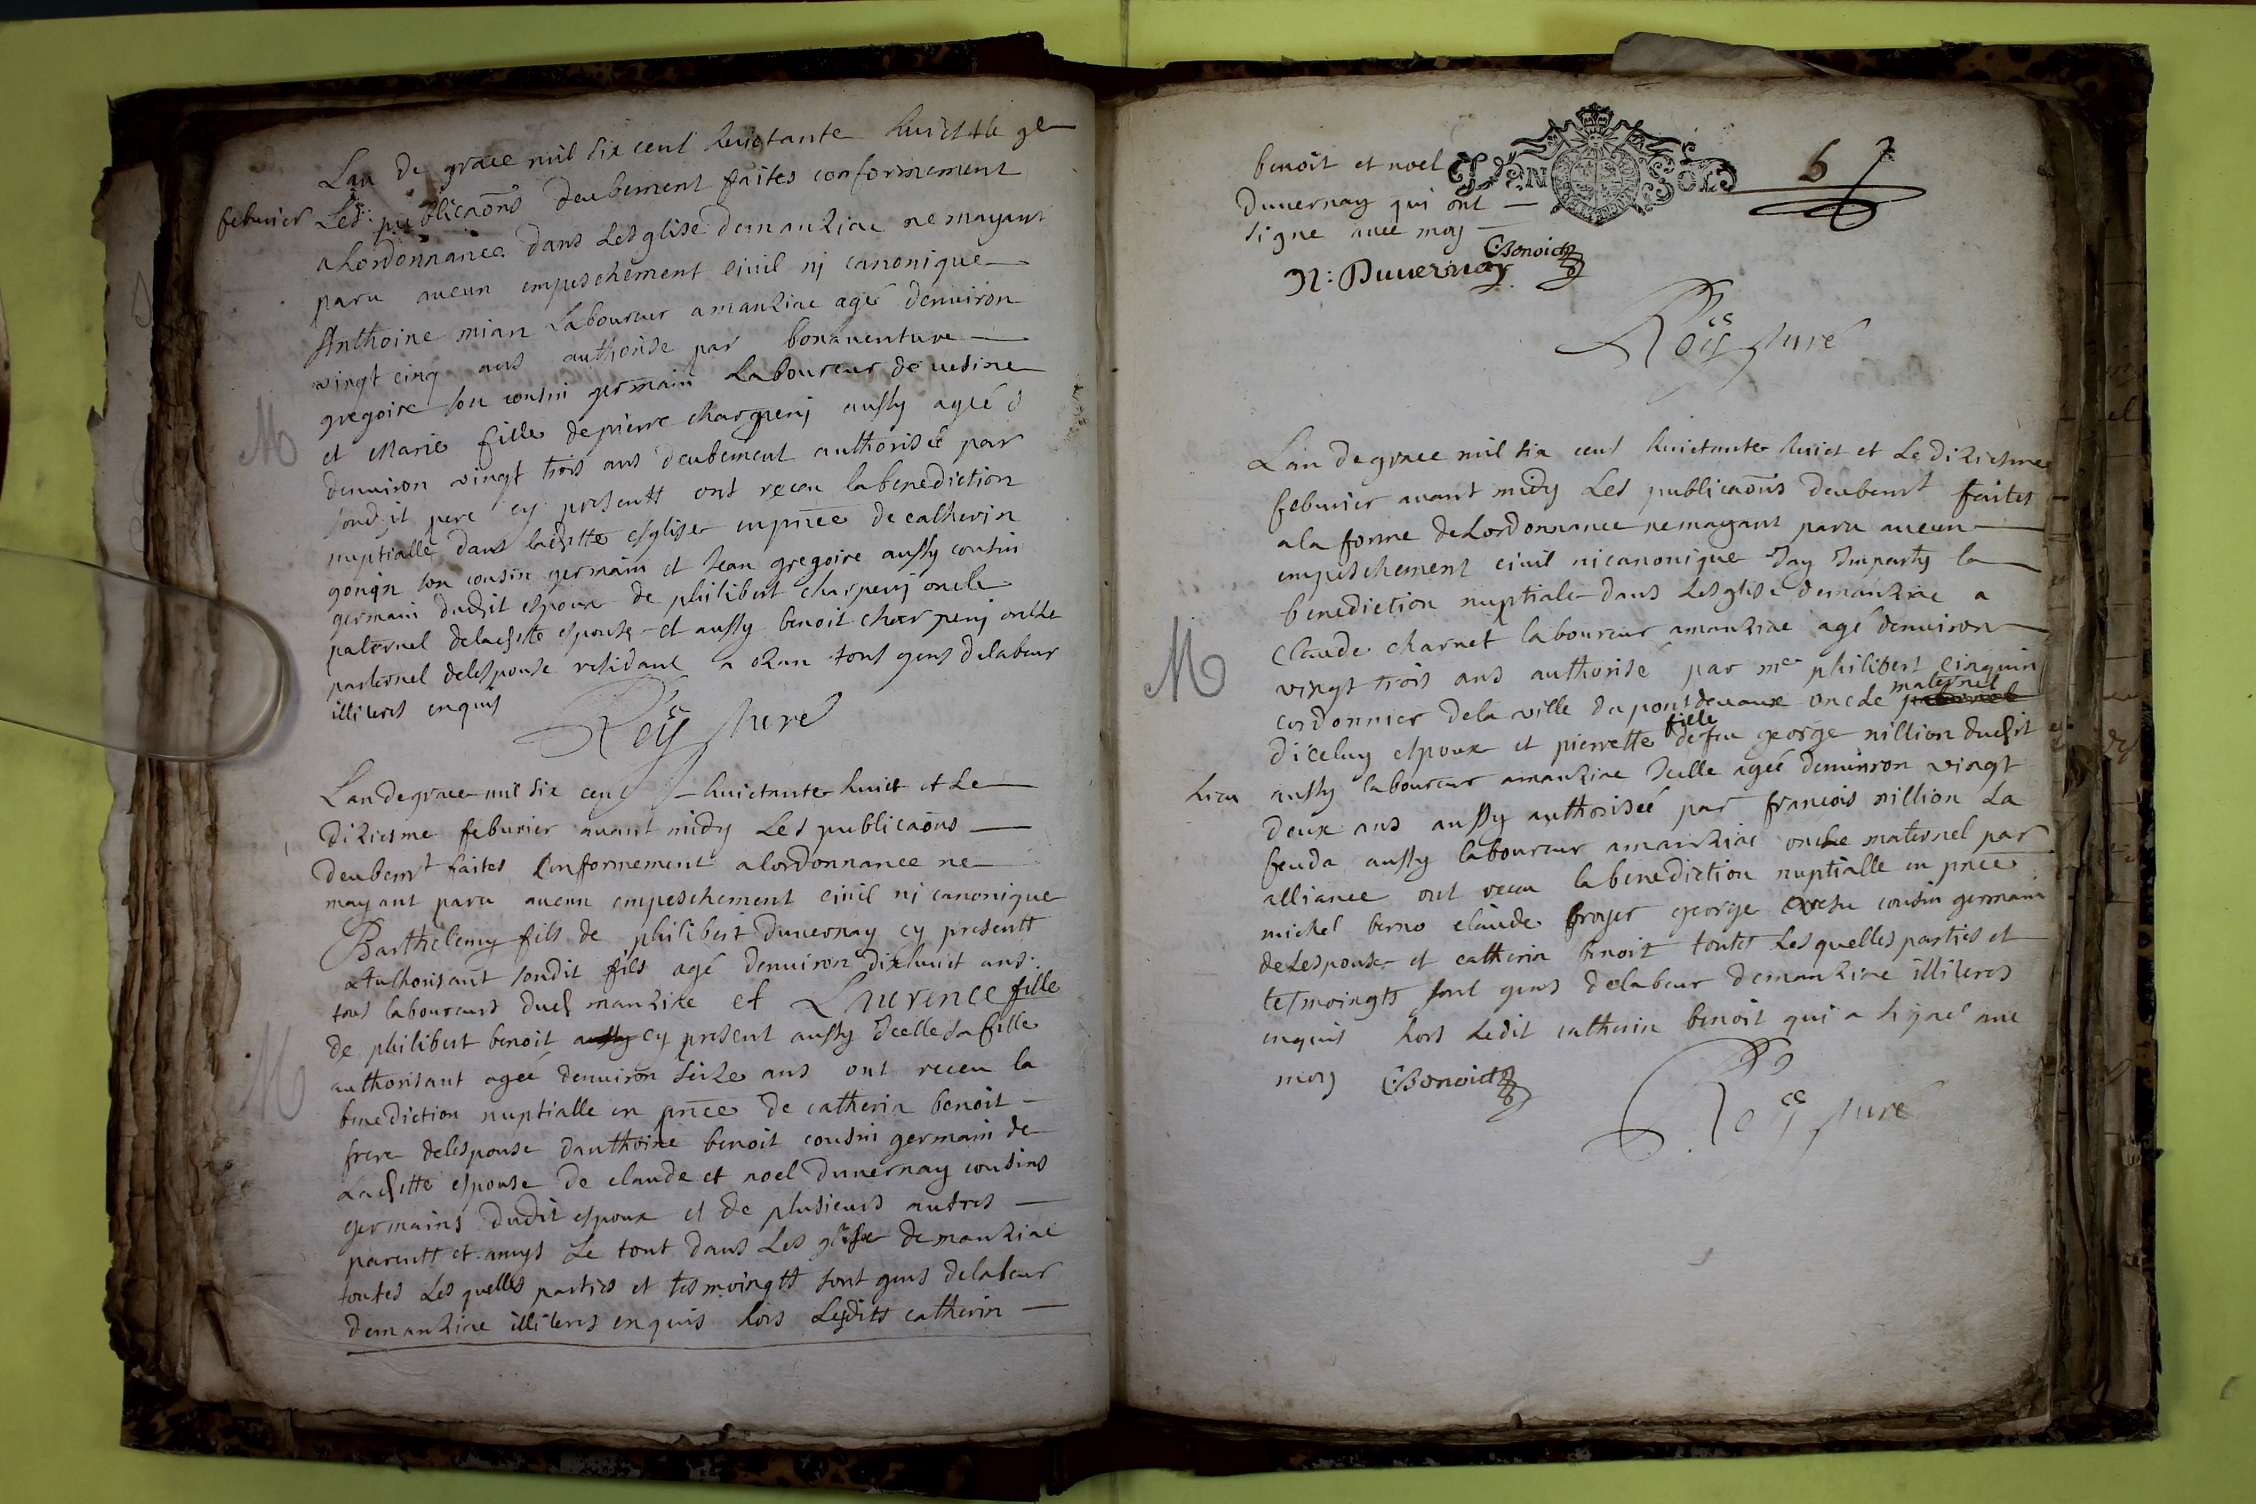 Lan de grace mil six cent huictante huict et le 9e
febvrier Les publicaõns deubement faites conformement
a Lordonnance dans Lesglise de manziac ne mayant
paru aucun empeschement civil nj canonique
Anthoine mian Laboureur a manziac agé denviron
vingt cinq ans authorisé par bonaventure
gregoire son cousin germain Laboureur de vesine
et Marie fille de pierre charpenj aussy agée d
denviron vingt trois ans deubement authorisée par
sondjt pere cy presentt ont receu la benediction
nuptialle dans ladjtte esglise en pñce de catherin
gonin son cousin germain et Jean gregoire aussy cousin
germain dudjt espoux de philibert charpenj oncle
paternel de ladjtte espouse et aussy benoit charpenj oncle
parternel delespouse residant a ozan tous gens de labeur
illiteres enquis
Roÿ curé
Lan de grace mil six cent huictante huict et Le
diziesme febvrier avant midy Les publicaõns
deubemt faites Conformement a lordonnance ne
mayant paru aucun empeschement civil ni canonique
Barthelemy fils de philibert duvernay cy presentt
Authorisant sondit fils agé denviron dixhuict ans
tous laboureurs dud manziac et Laurence fille
de philibert benoit aussy cy present aussy Icelle sa fille
authorisant agée denviron seize ans ont receu la
benediction nuptialle en pñce de catherin benoit
frere delespouse danthoine benoit cousin germain de
Ladjtte espouse de claude et noel duvernay cousins
germains dudit espoux et de plusieurs autres
parentt et amys Le tout dans Les glise de manziac
toutes Lesquelles parties et tesmoingtt sont gens de labeur
de manziac illiteres enquis hors Lesditts catherin
benoit et noel
duvernay qui ont
signe avec moy
6
C Benoict
N: Duvernay
Roÿ curé
Lan de grace mil six cent huictante huict et Le diziesme
febvrier avant midy Les publicaõns deubemt faites
a la forme de Lordonnance ne mayant paru aucun
empeschement civil ni canonique Jay Imparty la
benediction nuptiale dans Lesglise de manziac a
Claude charnet laboureur a manziac agé denviron
vingt trois ans authorisé par me philibert cinquin
cordonnier de la ville du pontdevaux oncle maternel
diceluy espoux et pierrette fille de feu george nillion dudjt
lieu aussy laboureur a manziac Icelle agée denviron vingt
deux ans aussy authorisée par francois nillion La
feuda aussy laboureur a manziac oncle maternel par
alliance ont receu la benediction nuptialle en pnce
michel berno claude froyer george cousin germain
de Lespouse et catherin benoit toutes Lesquelles parties et
tesmoingts sont gens de labeur de manziac illiteres
enquis hors Ledit catherin benoit qui a signé avec
moy C Benoict
Roÿ curé